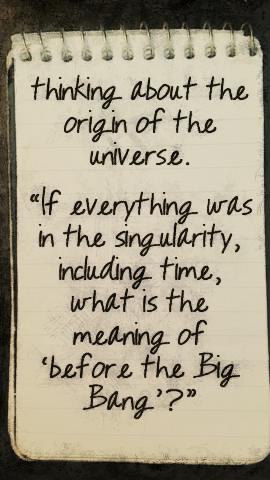 thinking about the
origin of the
universe.
“If everything was
in the singularity,
including time,
what is the
meaning of
‘before the Big
Bang’?”